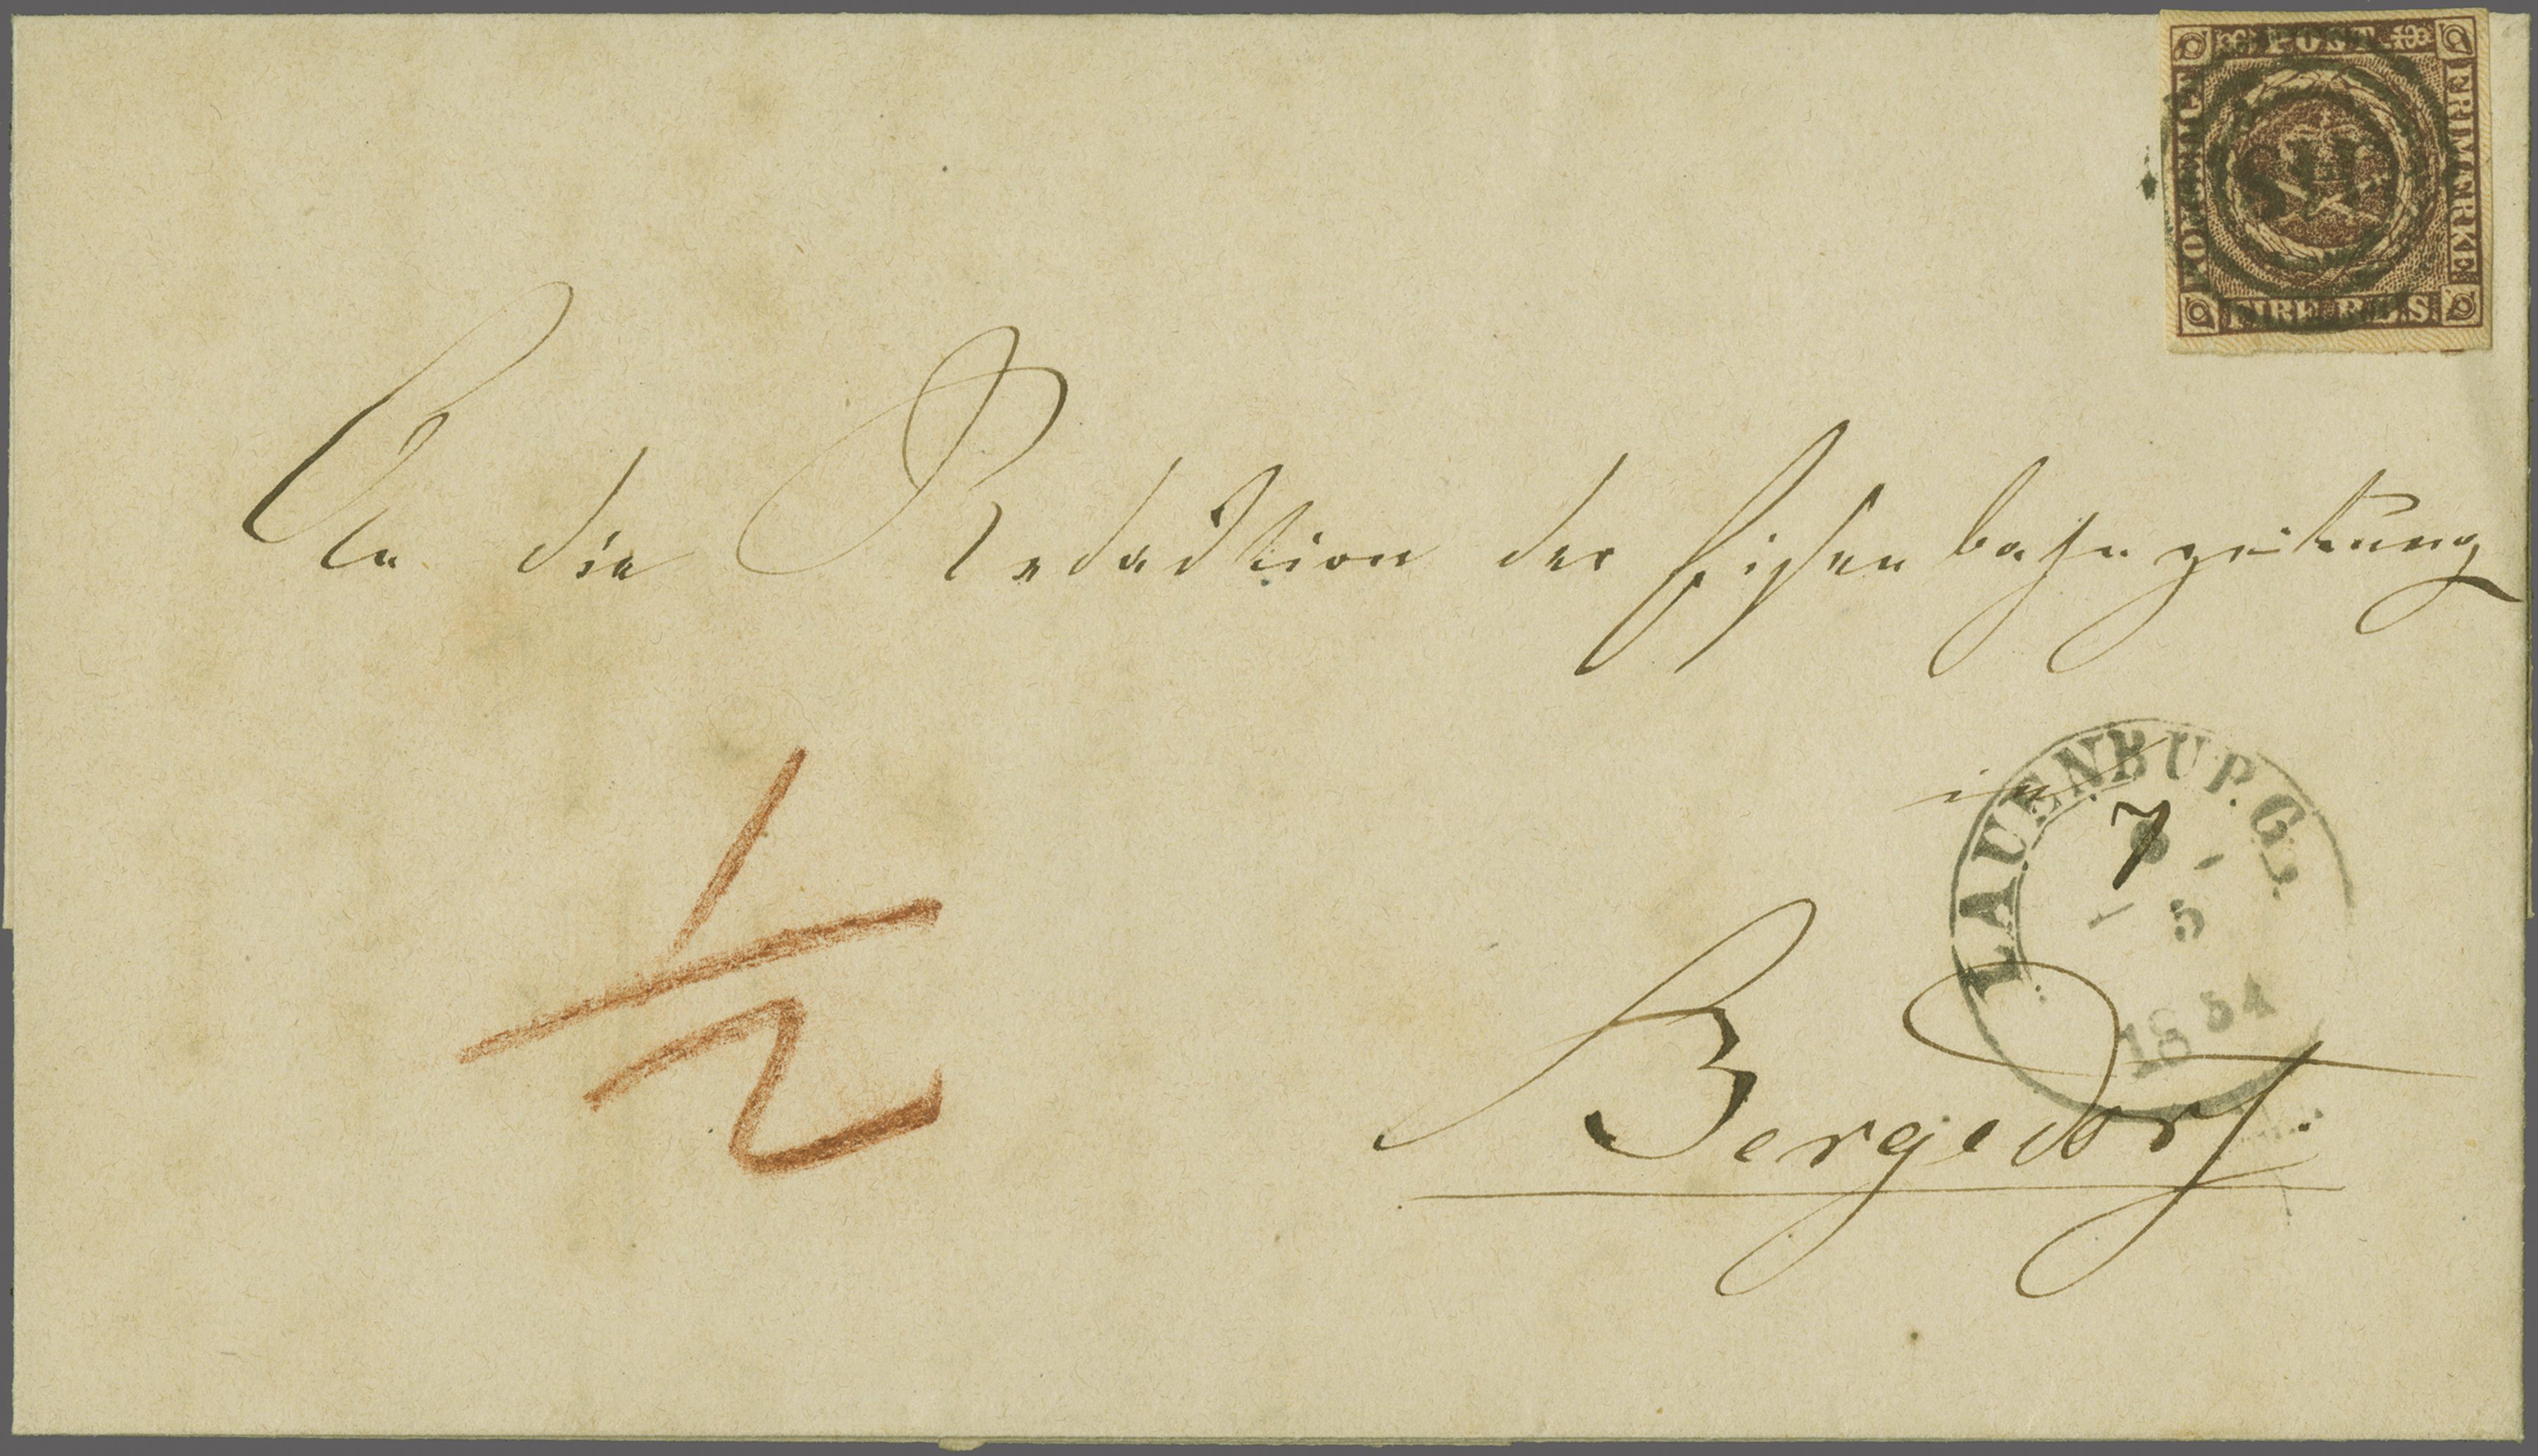 POST
KONGELIGT
FRIMÆRKE
FIRE R.B.S.
An die Redaction der Eisenbahnzeitung
in
LAUENBURG.
7
5
1854
Bergedorf.
1/2